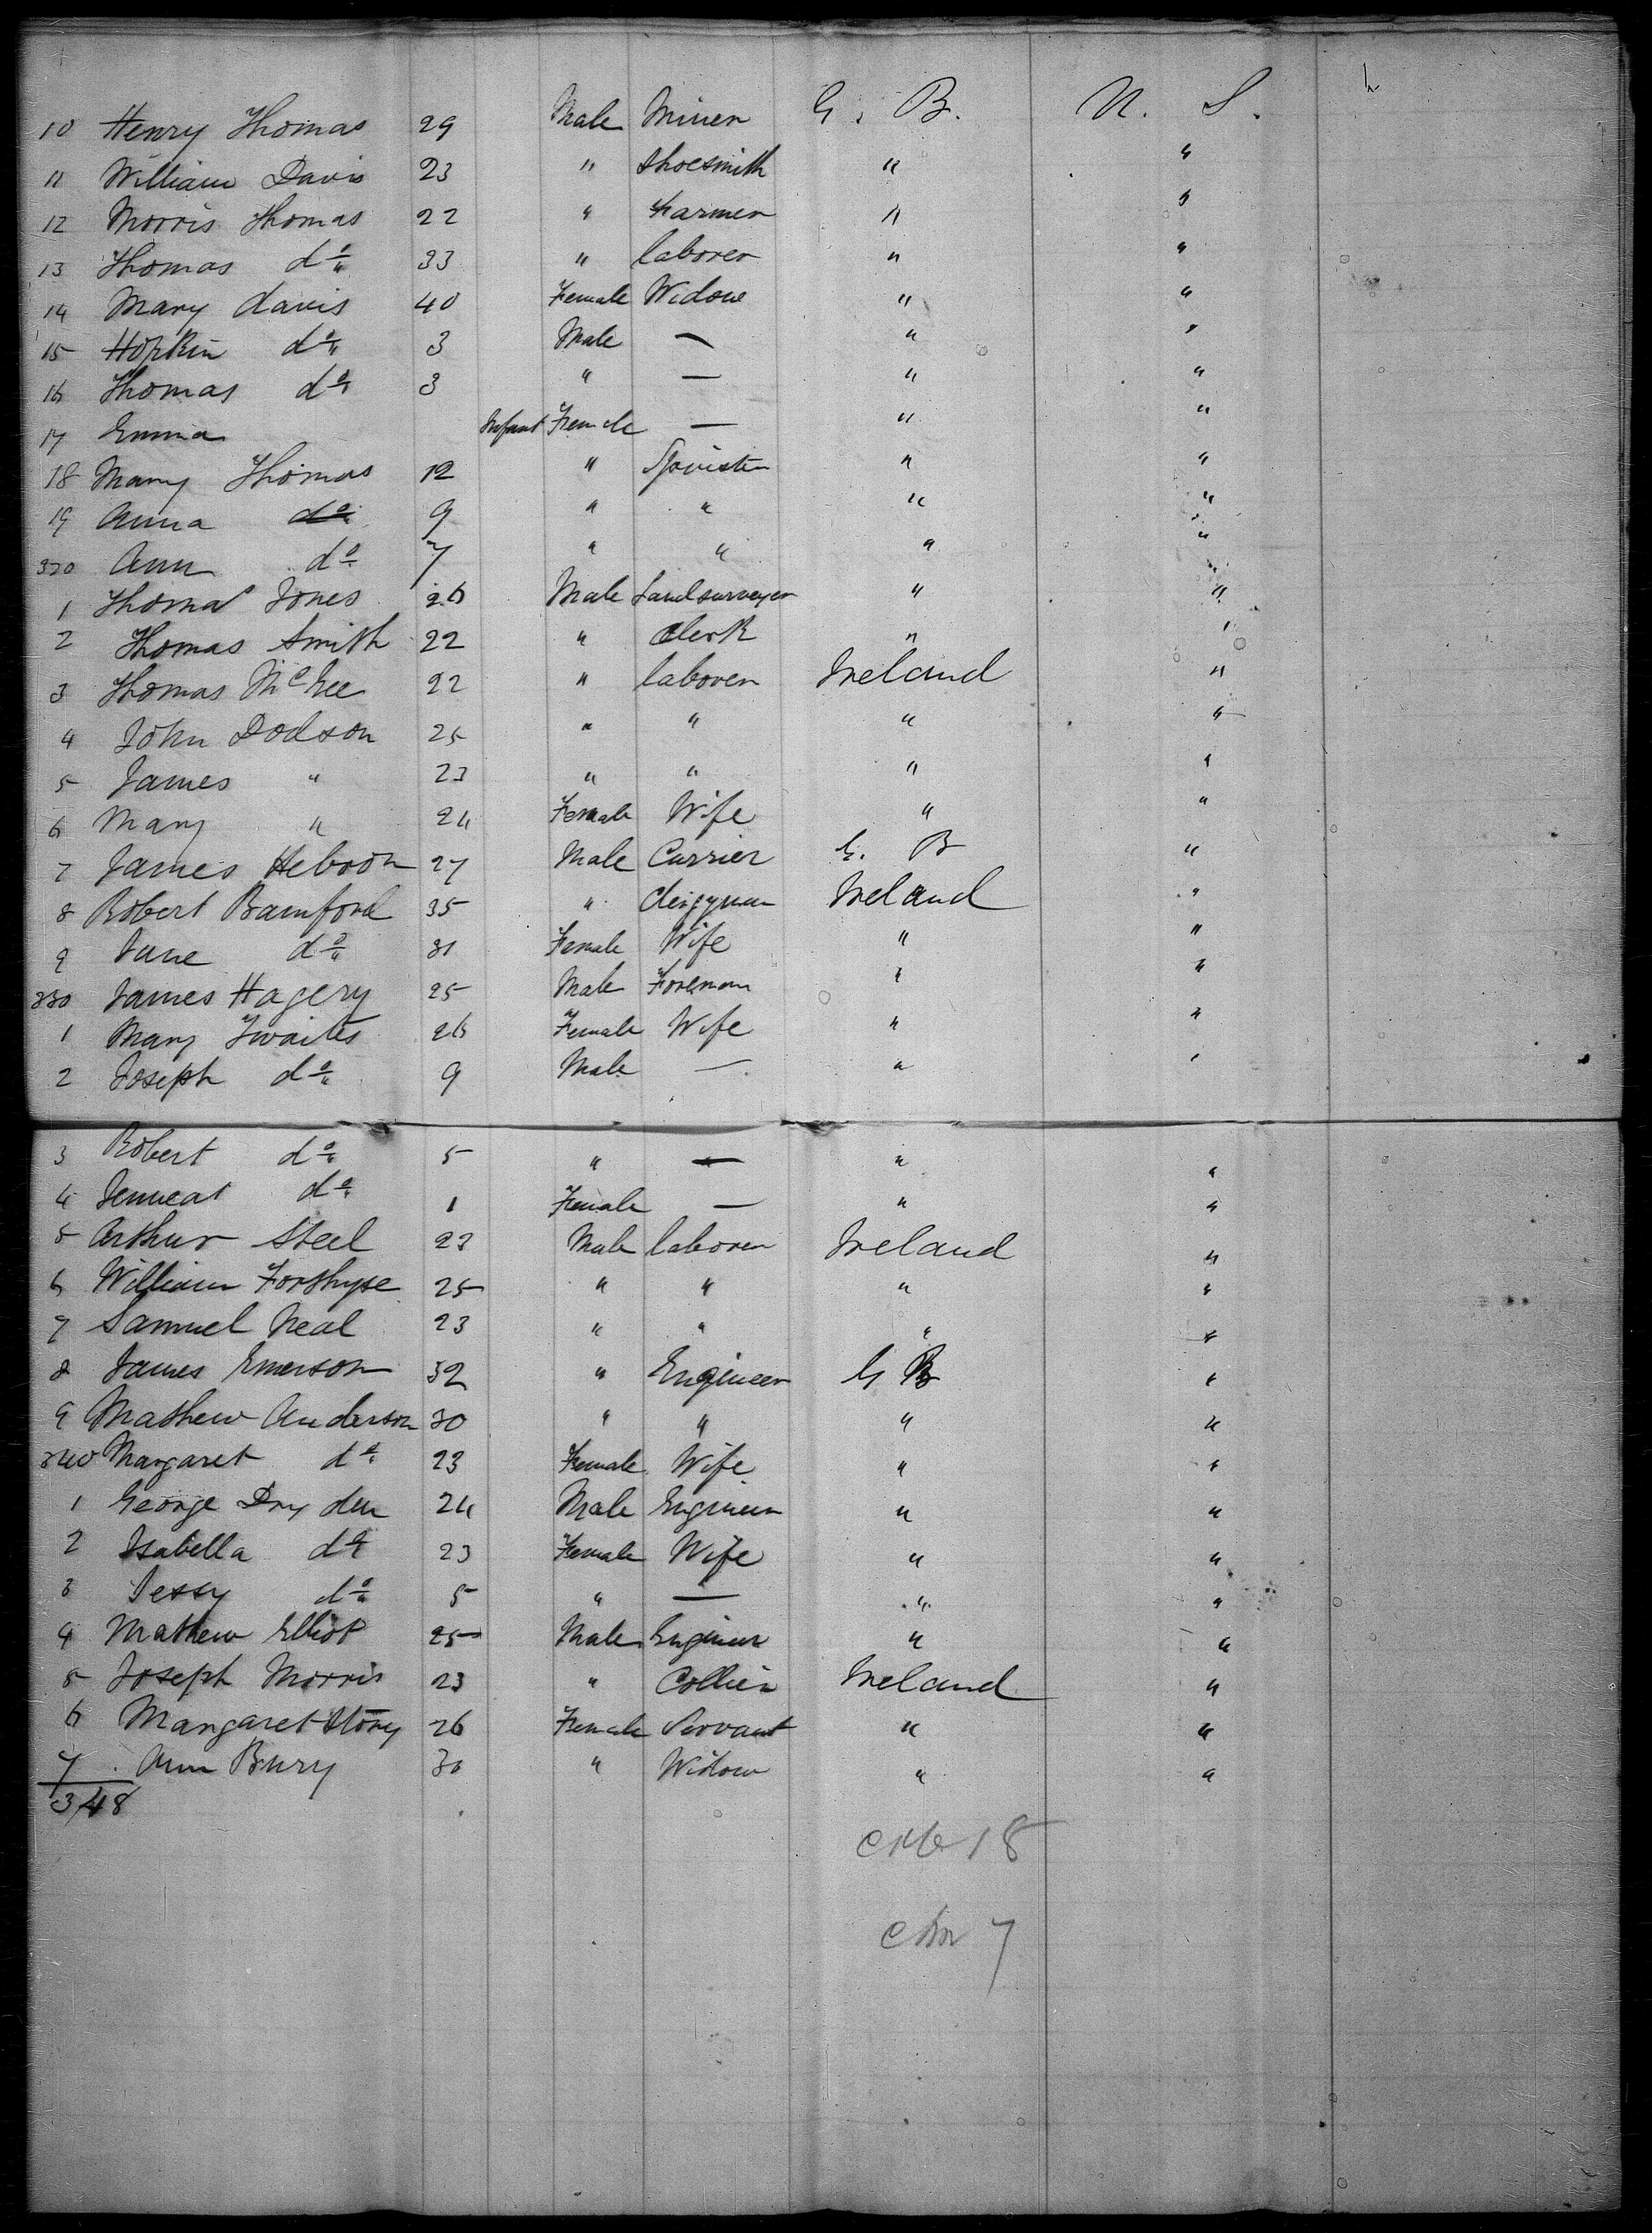 10 Henry Thomas 29 Male Miner G. B. U. S.
11 William Davis 23 " Shoesmith " "
12 Morris Thomas 22 " Farmer " "
13 Thomas do 33 " laborer " "
14 Mary davis 40 Female Widow " "
15 Hopkin do 3 Male — " "
16 Thomas do 3 " — " "
17 Emma Infant Female — " "
18 Mary Thomas 12 " Spinster " "
19 Anna do 9 " " " "
320 Ann do 7 " " " "
1 Thomas Jones 26 Male Landsurveyor " "
2 Thomas Smith 22 " Clerk " "
3 Thomas McKee 22 " laborer Ireland "
4 John Dodson 25 " " " "
5 James " 23 " " " "
6 Mary " 24 Female Wife " "
7 James Hebron 27 Male Currier G. B "
8 Robert Bamford 35 " Clergyman Ireland "
9 Jane do 31 Female Wife " "
330 James Hagery 25 Male Foreman " "
1 Mary Twaites 26 Female Wife " "
2 Joseph do 9 Male — " "
3 Robert do 5 " — " "
4 Jenneat do 1 Female — " "
5 Arthur Steel 23 Male laborer Ireland "
6 William Forthyse 25 " " " "
7 Samuel Neal 23 " " " "
8 James Emerson 32 " Engineer G B "
9 Mathew Anderson 30 " " " "
340 Margaret do 23 Female Wife " "
1 George Dryden 24 Male Engineer " "
2 Isabella do 23 Female Wife " "
3 Jessy do 5 " — " "
4 Mathew Elliot 25 Male Engineer " "
5 Joseph Morris 23 " Collier Ireland "
6 Margaret Story 26 Female Servant " "
7 Ann Bury 30 " Widow " "
348
18
7